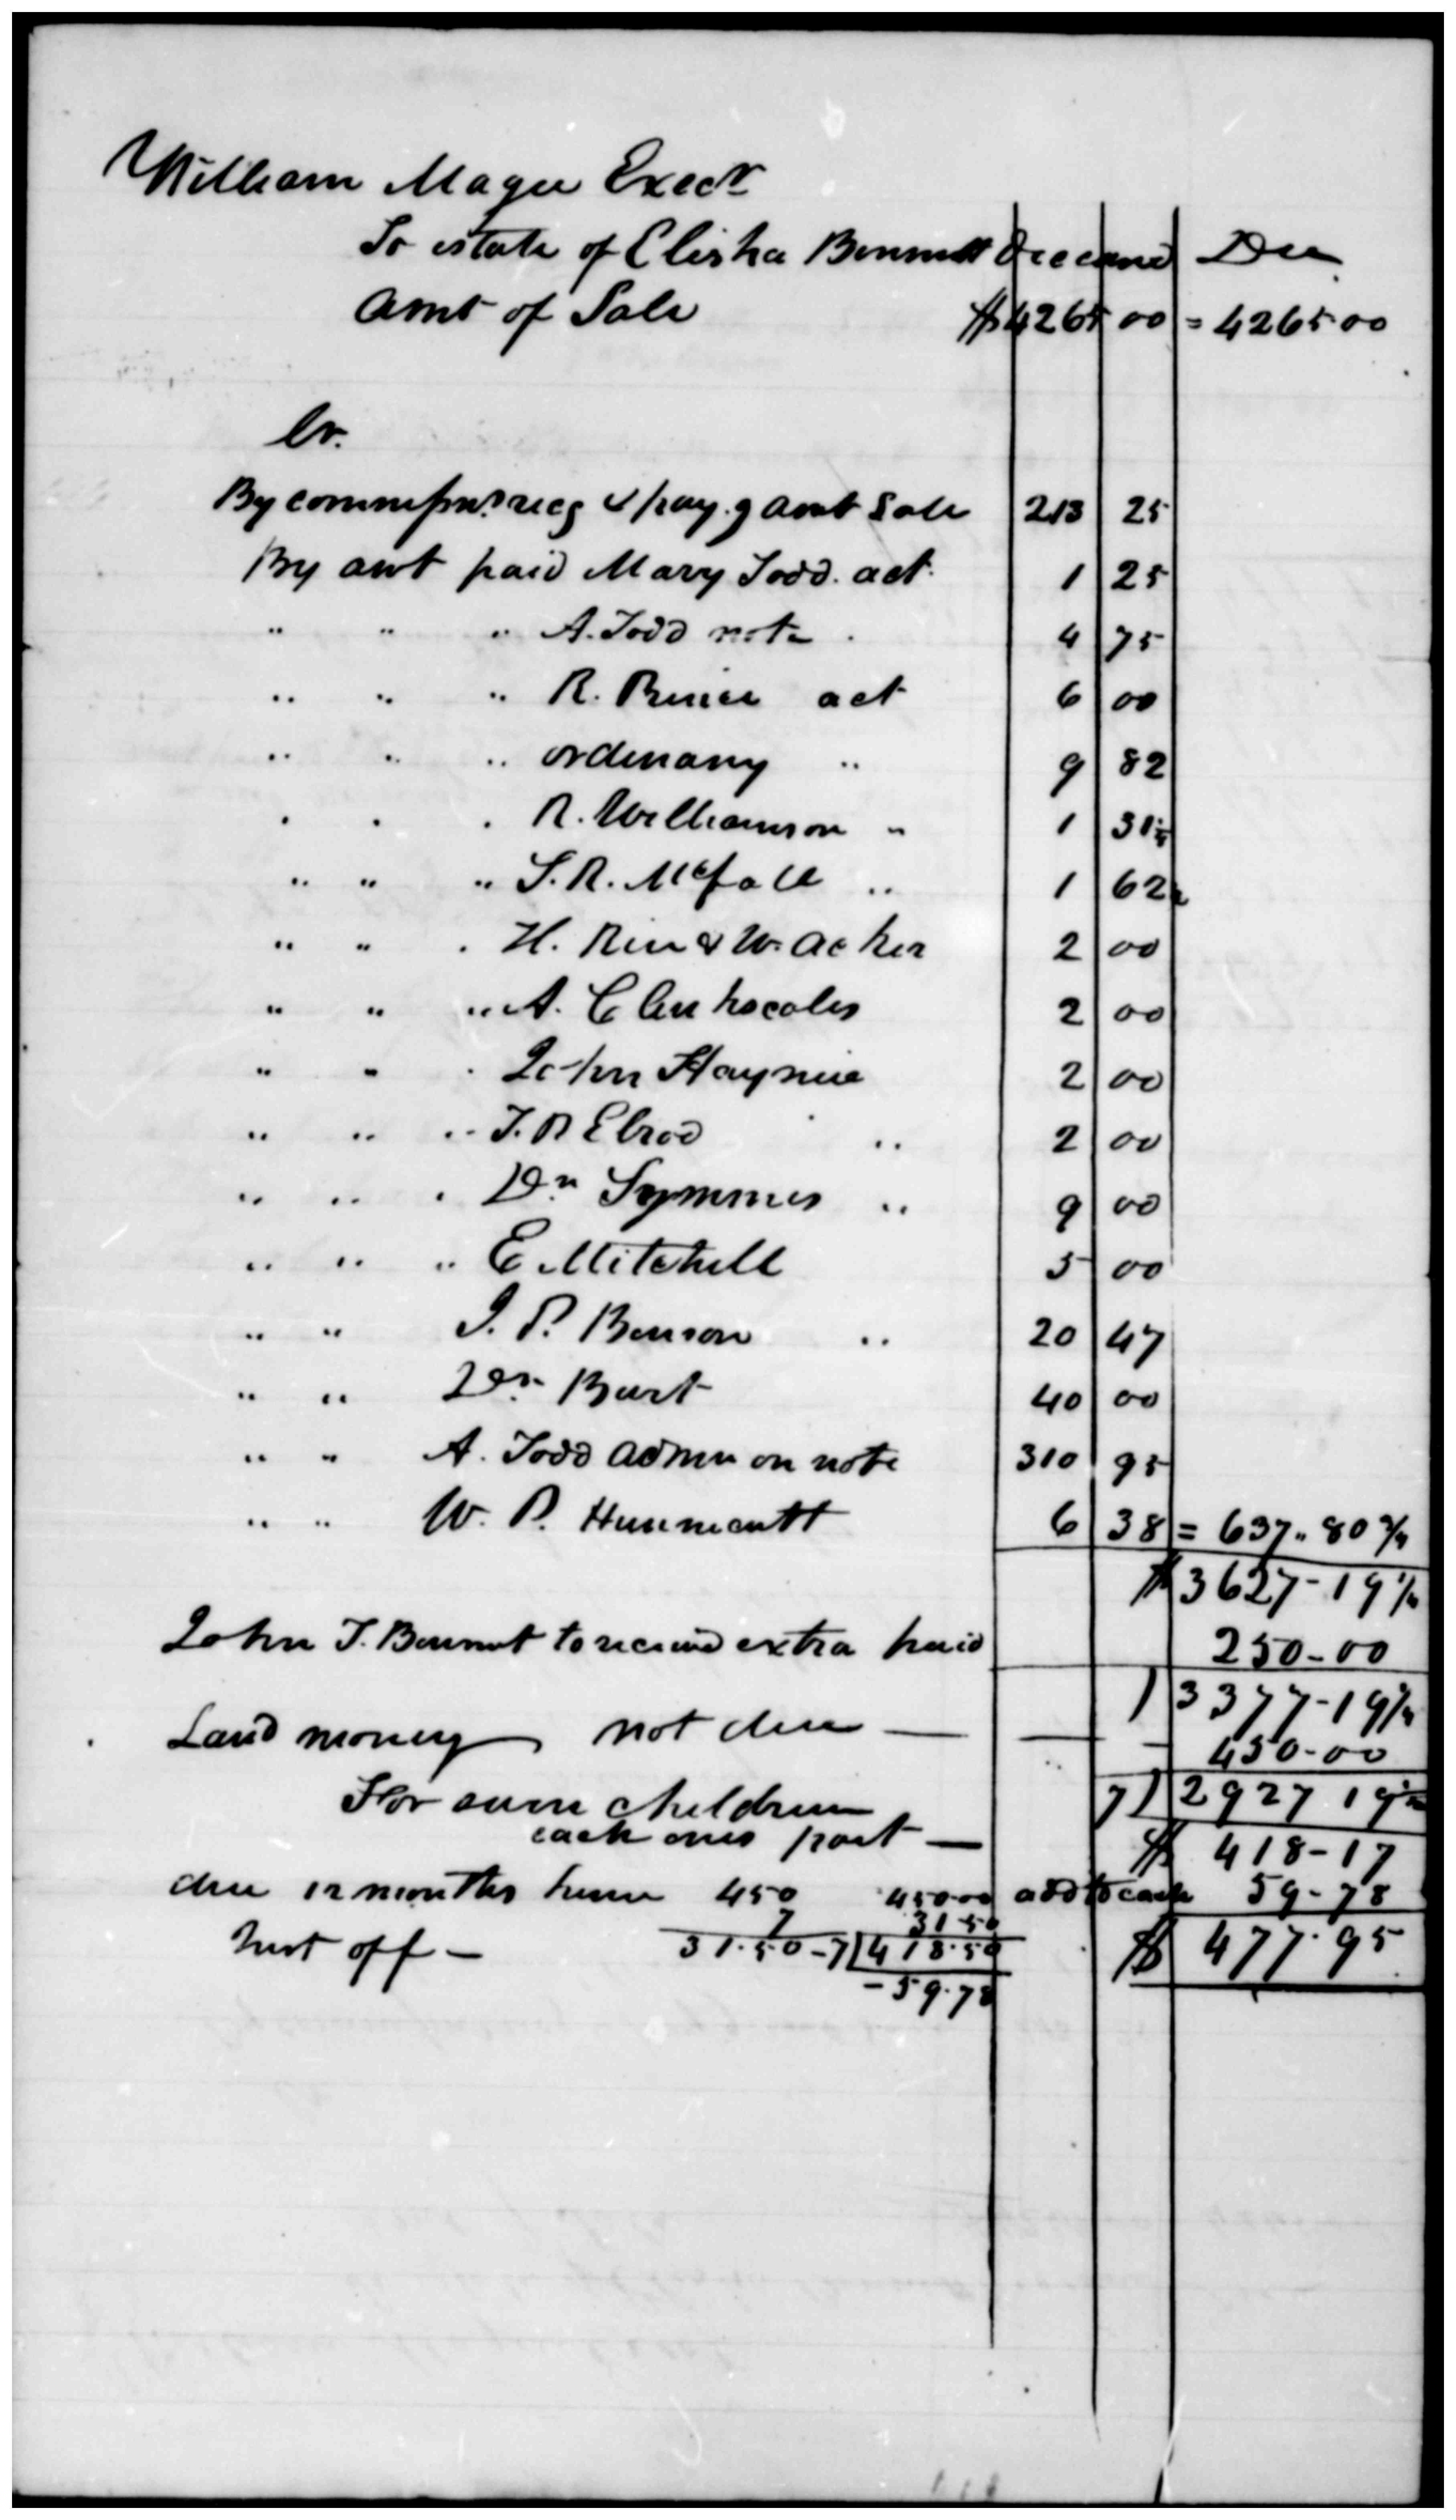 William Magee Execr
To estate of Elisha Bennett Deceased Due
Amt of Sale $4265 00 = 4265 00
Cr.
By commissns recg & payg amt Sale 213 25
By amt paid Mary Todd. act. 1 25
" " " A. Todd note. 4 75
" " " R. Brice act 6 00
" " " ordenary " 9 82
" " " R. Williamson " 1 31 1/4
" " " S. R. McFall " 1 62 1/2
" " " H. Rice & W. Acker 2 00
" " " A. Clinkscales 2 00
" " " John Haynie 2 00
" " " T. R Elrod " 2 00
" " " Dr Symmes " 9 00
" " " E. Mitchell 5 00
" " J. P. Benson " 20 47
" " Dr. Burt 40 00
" " A. Todd admr on note 310 95
" " W. P. 6 38 = 637. 80 3/4
$3627-19 1/4
John T. Bennet to receive extra paid 250-00
3377-19 1/4
Land money not due — 450-00
For seven children 7) 2927 19 1/4
each ones part — $ 418-17
due 12 months hence 450 450-00 add to each 59-78
7 31-50
Int off - 31.50 - 7 | 418.50 $ 477.95
- 59.78